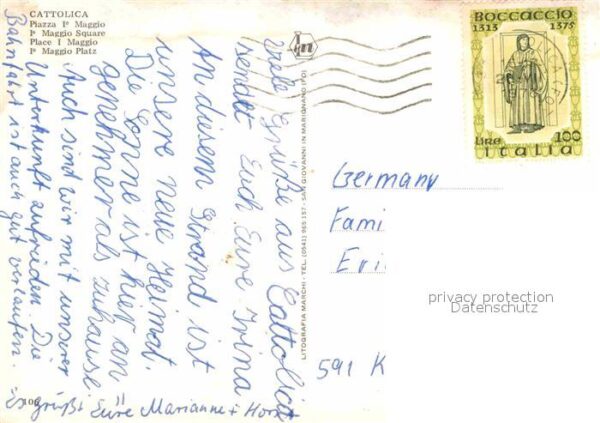 CATTOLICA
Piazza Iº Maggio
Iº Maggio Square
Place I Maggio
Iº Maggio Platz
Viele Grüße aus Cattolica
sendet Euch Eure Irina
An diesem Strand ist
unsere neue Heimat.
Die Sonne ist hier an
genehmer als zuhause
Auch sind wir mit unserer
Unterkunft zufrieden. Die
Bahnfahrt ist auch gut verlaufen.
Es grüßt Eure Marianne + Horst
106
LITOGRAFIA MARCHI - TEL. (0541) 965 157 - SAN GIOVANNI IN MARIGNANO (FO)
BOCCACCIO
1313 1375
LIRE 100
italia
Germany
Fami
Eri
591 K
privacy protection
Datenschutz